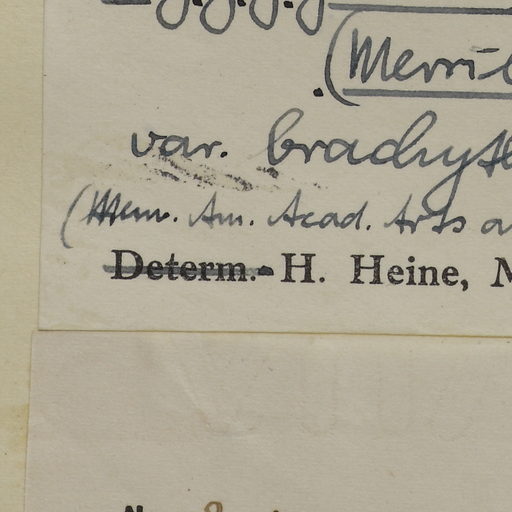 (Merri
var. brachyt
(Mem. Am. Acad. Arts a
Determ. - H. Heine, M